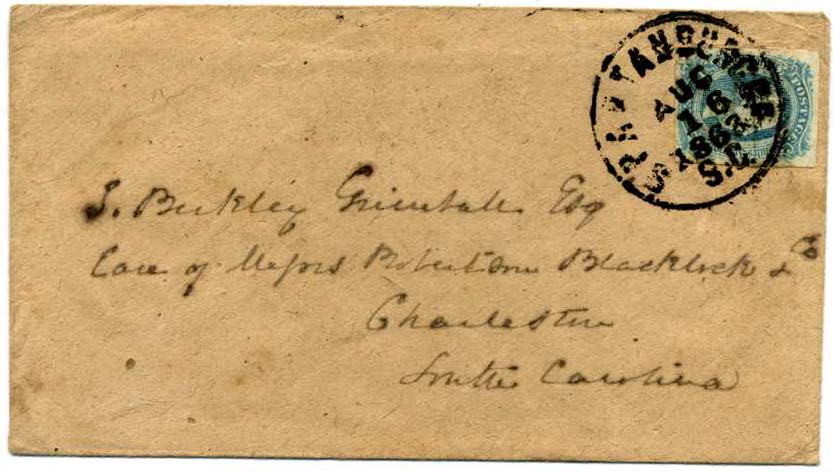 SPARTANBURG C.H.
AUG
16
1863
S.C.
POSTAGE
S. Berkley Grimball Esq
Care of Messrs Robertson Blacklock & Co
Charleston
South Carolina